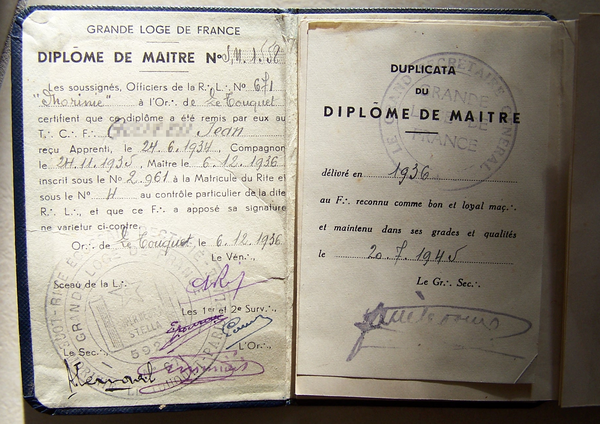 GRANDE LOGE DE FRANCE
DIPLÔME DE MAITRE N° S.M. 1.552
Les soussignés, Officiers de la R∴ L∴ N° 671
à l'Or∴ de Le Touquet
certifient que ce diplôme a été remis par eux au
T∴ C∴ F∴ Jean
reçu Apprenti, le 24.6.1934, Compagnon
le 24.11.1935, Maître le 6.12.1936
inscrit sous le N° 2.961 à la Matricule du Rite et
sous le N° 4 au contrôle particulier de la dite
R∴ L∴, et que ce F∴ a apposé sa signature
ne varietur ci-contre.
Or∴ de Le Touquet le 6.12.1936
Le Vén∴,
Sceau de la L∴
Les 1er et 2e Surv∴,
Le Sec∴, L'Or∴,
GRANDE LOGE
DUPLICATA
DU
DIPLÔME DE MAITRE
délivré en 1936
au F∴ reconnu comme bon et loyal maç∴
et maintenu dans ses grades et qualités
le 20.7.1945
Le Gr∴ Sec∴
LE GRAND SECRÉTAIRE GÉNÉRAL
GRANDE
LOGE DE
FRANCE